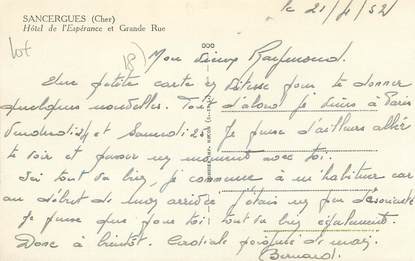 SANCERGUES (Cher)
Hôtel de l'Espérance et Grande Rue
le 21/4/52
lot
Mon vieux Raymond.
Une petite carte en vitesse pour te donner
quelques nouvelles. Tout d'abord je viens à Paris
Vendredi 24 et Samedi 25. Je pense d'ailleurs aller
te voir et passer un moment avec toi.
Ici tout va bien, je commence à m'habituer car
au début de mon arrivée j'étais un peu désorienté
Je pense que pour toi tout va bien également.
Donc à bientôt. Cordiale poignée de main
Bernard.